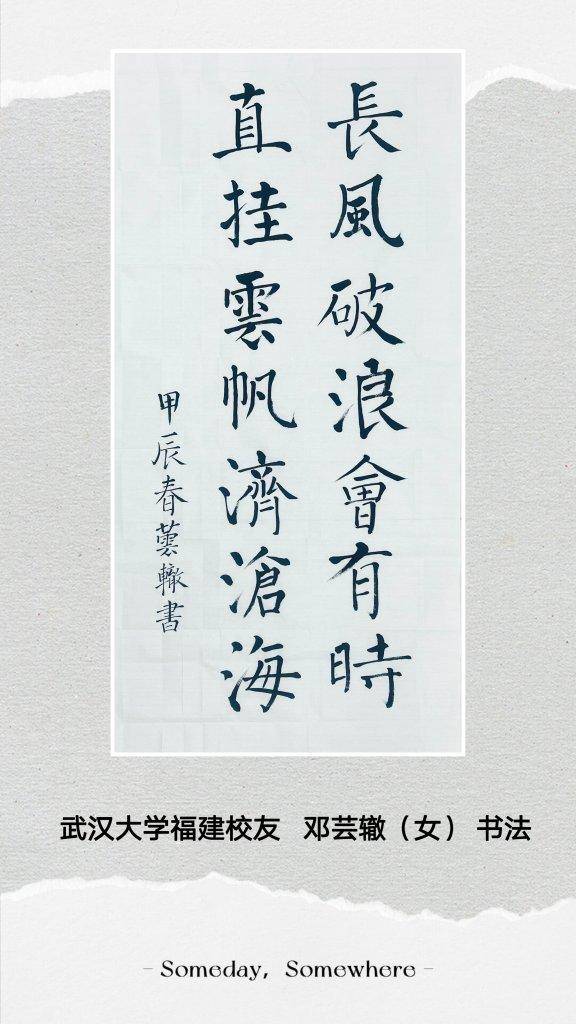 長風破浪會有時
直挂雲帆濟滄海
甲辰春蕓轍書
武汉大学福建校友 邓芸辙（女） 书法
- Someday, Somewhere -